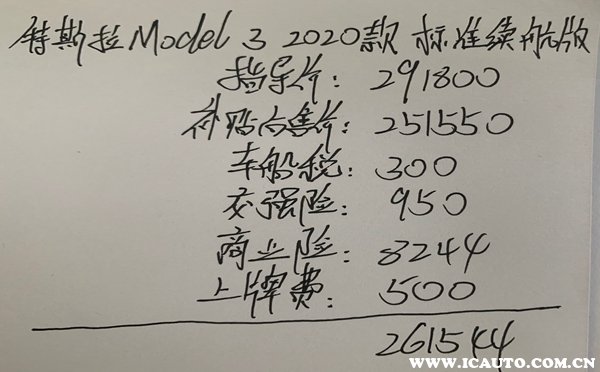 特斯拉Model 3 2020款 标准续航版
指导价: 291800
补贴后售价: 251550
车船税: 300
交强险: 950
商业险: 8244
上牌费: 500
261544
WWW.ICAUTO.COM.CN